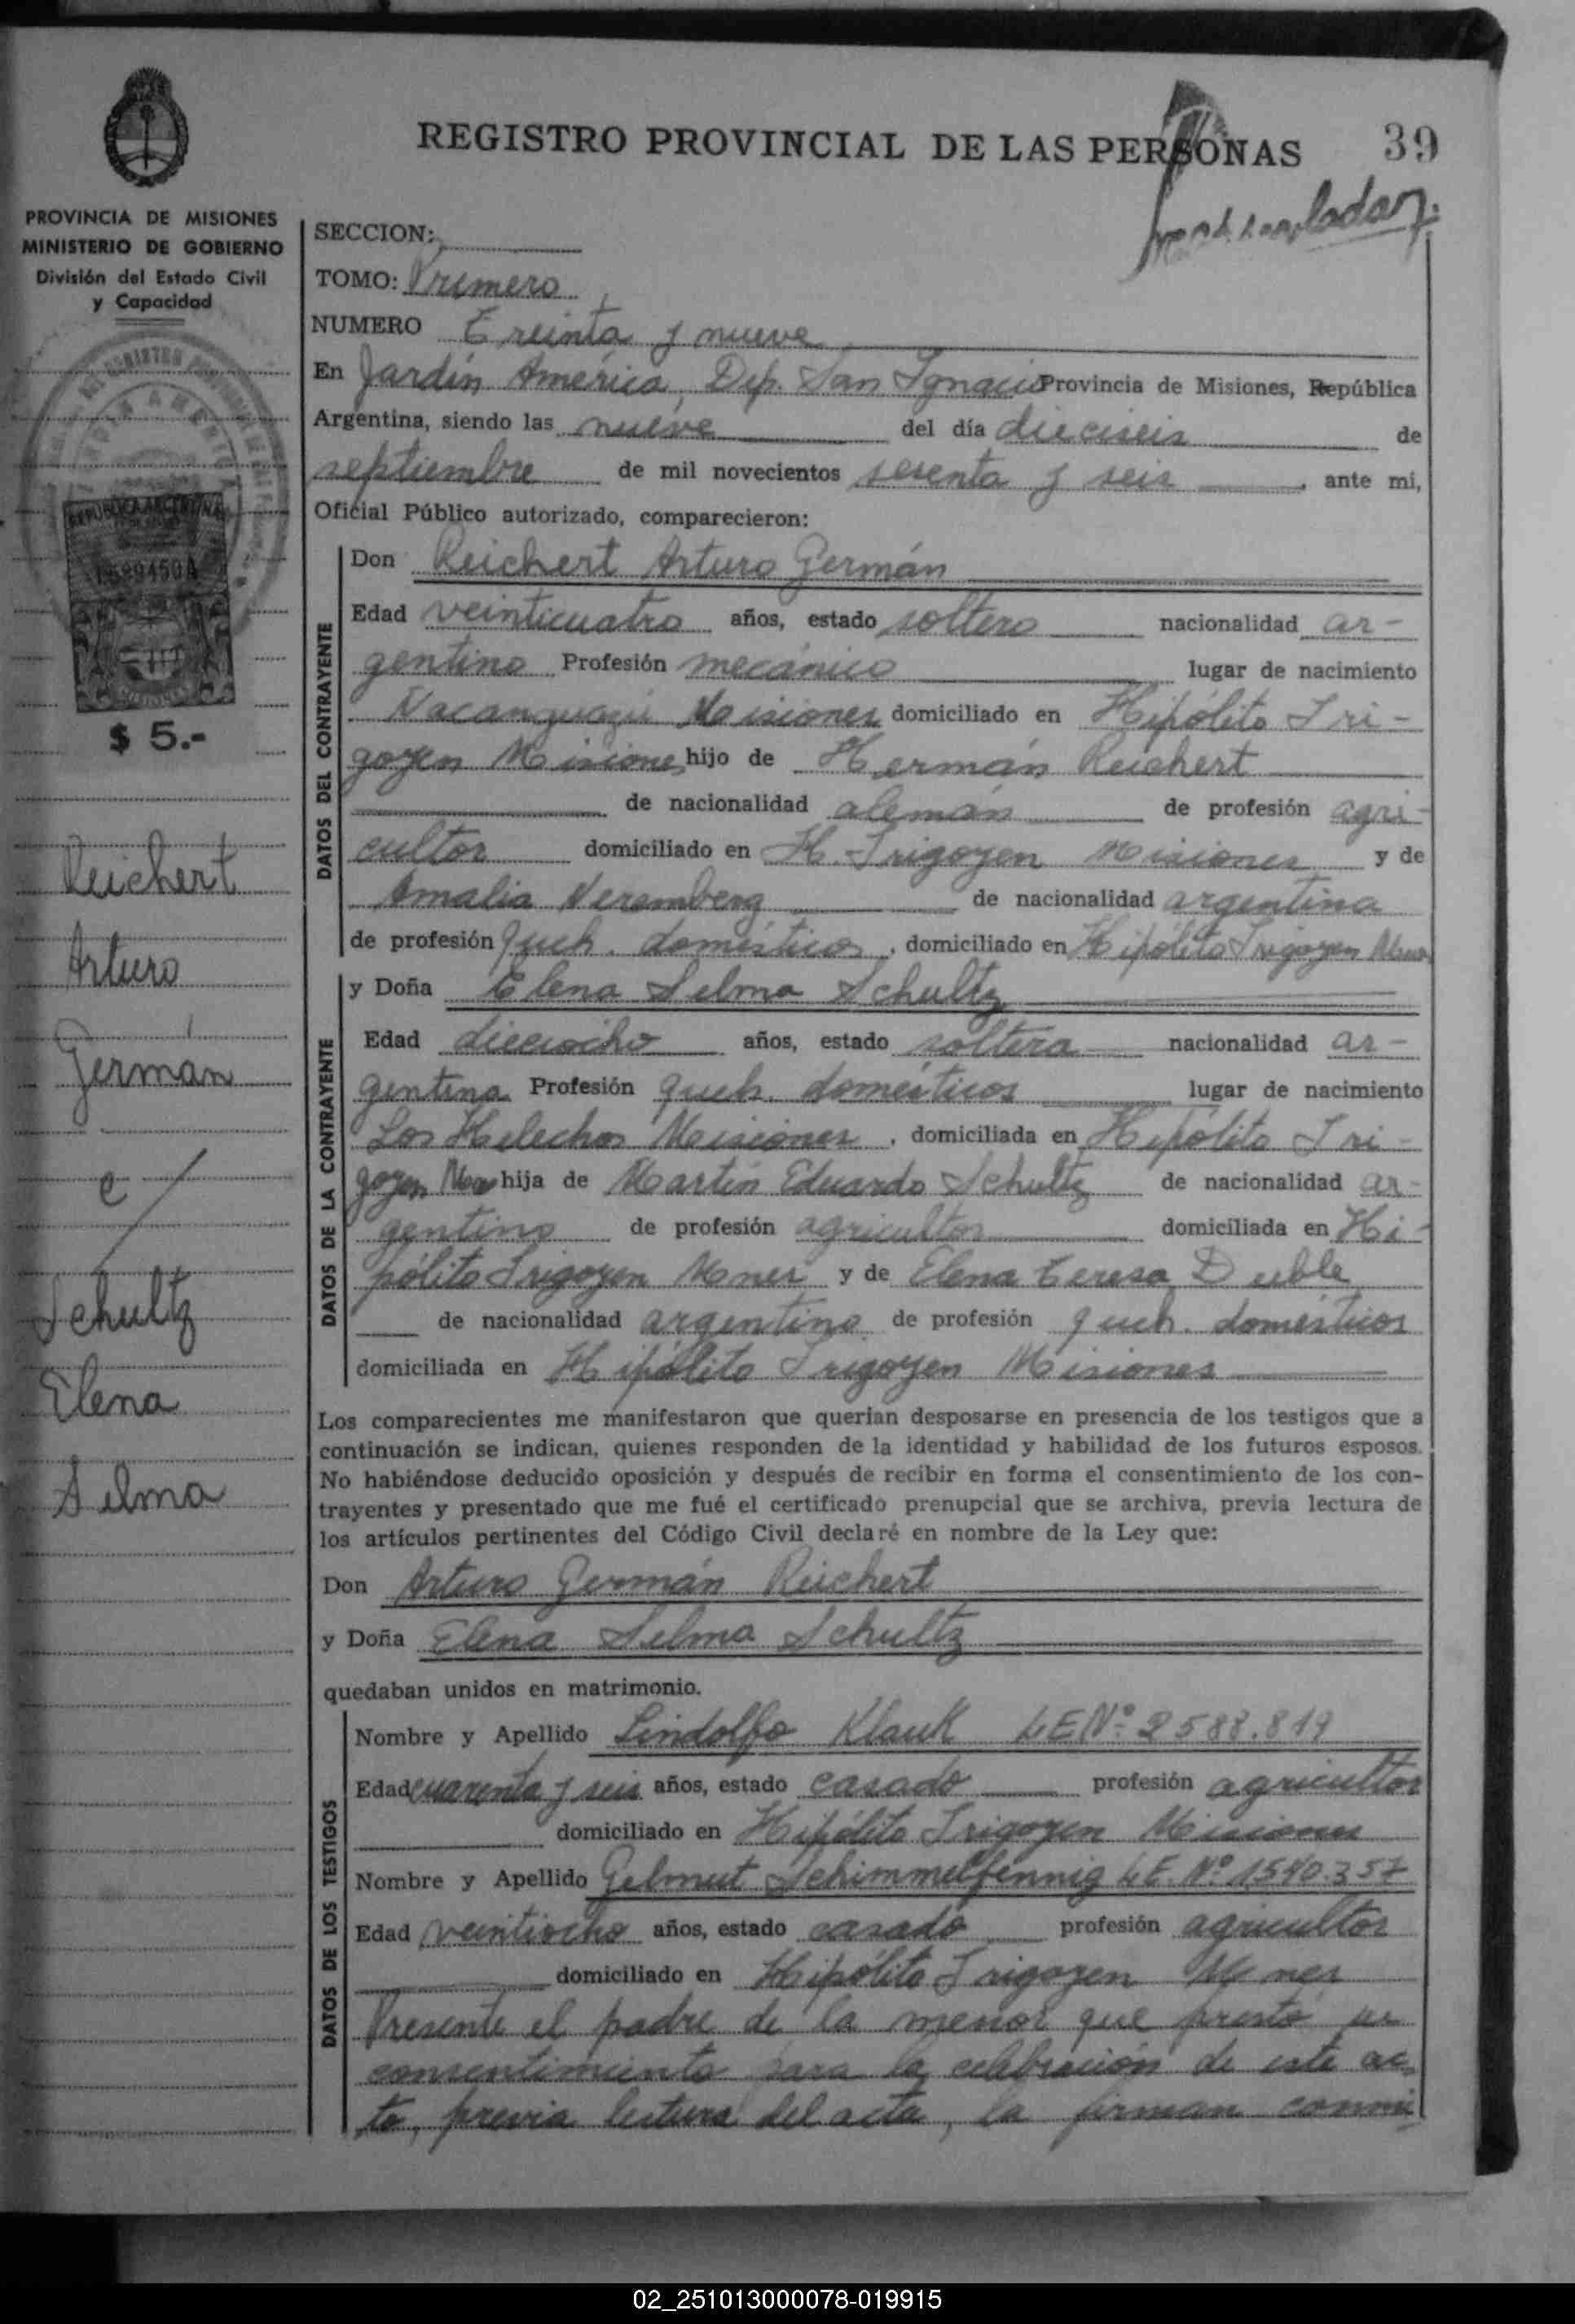 REGISTRO PROVINCIAL DE LAS PERSONAS 39
PROVINCIA DE MISIONES
MINISTERIO DE GOBIERNO
División del Estado Civil
y Capacidad
REPUBLICA ARGENTINA
$ 5.-
Reichert
Arturo
Germán
c/
Schultz
Elena
Selma
SECCION:
TOMO: Primero
NUMERO Treinta y nueve
En Jardín América, Dep. San Ignacio Provincia de Misiones, República
Argentina, siendo las nueve del día dieciseis de
septiembre de mil novecientos sesenta y seis, ante mi,
Oficial Público autorizado, comparecieron:
DATOS DEL CONTRAYENTE
Don Reichert Arturo Germán
Edad veinticuatro años, estado soltero nacionalidad ar-
gentino Profesión mecánico lugar de nacimiento
Misiones domiciliado en Hipólito Iri-
goyen Misiones hijo de Hermán Reichert
de nacionalidad alemán de profesión agri-
cultor domiciliado en H. Irigoyen Misiones y de
Amalia de nacionalidad argentina
de profesión queh. domésticos, domiciliado en Hipólito Irigoyen
DATOS DE LA CONTRAYENTE
y Doña Elena Selma Schultz
Edad dieciocho años, estado soltera nacionalidad ar-
gentina Profesión queh. domésticos lugar de nacimiento
Los Helechos Misiones, domiciliada en Hipólito Iri-
goyen hija de Martín Eduardo Schultz de nacionalidad ar-
gentino de profesión agricultor domiciliada en Hi-
pólito Irigoyen Mnes y de Elena Teresa
de nacionalidad argentina de profesión queh. domésticos
domiciliada en Hipólito Irigoyen Misiones
Los comparecientes me manifestaron que querían desposarse en presencia de los testigos que a
continuación se indican, quienes responden de la identidad y habilidad de los futuros esposos.
No habiéndose deducido oposición y después de recibir en forma el consentimiento de los con-
trayentes y presentado que me fué el certificado prenupcial que se archiva, previa lectura de
los artículos pertinentes del Código Civil declaré en nombre de la Ley que:
Don Arturo Germán Reichert
y Doña Elena Selma Schultz
quedaban unidos en matrimonio.
DATOS DE LOS TESTIGOS
Nombre y Apellido Lindolfo Klauk LE Nº 2588.819
Edad cuarenta y seis años, estado casado profesión agricultor
domiciliado en Hipólito Irigoyen Misiones
Nombre y Apellido Gelmut Schimmelfennig LE. Nº 1540.357
Edad veintiocho años, estado casado profesión agricultor
domiciliado en Hipólito Irigoyen Mnes
Presente el padre de la menor que prestó su
consentimiento para la celebración de este ac-
to, previa lectura del acta, la firman conmi-
02_251013000078-019915